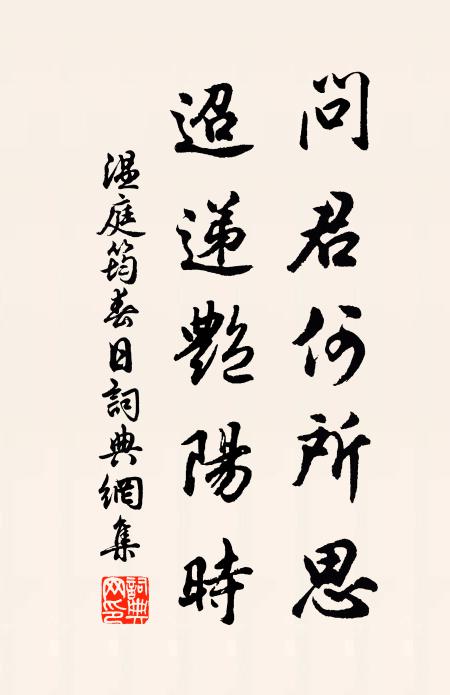 問君何所思
迢遞艷陽時
溫庭筠春日詞典網集
詞典
网印